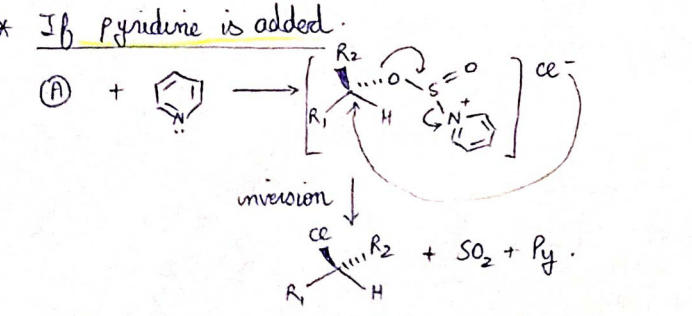 * If pyridine is added.
R2
A + N: → [ R1 H O S O N+ ] Cl-
inversion ↓
Cl
R2 + SO2 + Py.
R1 H